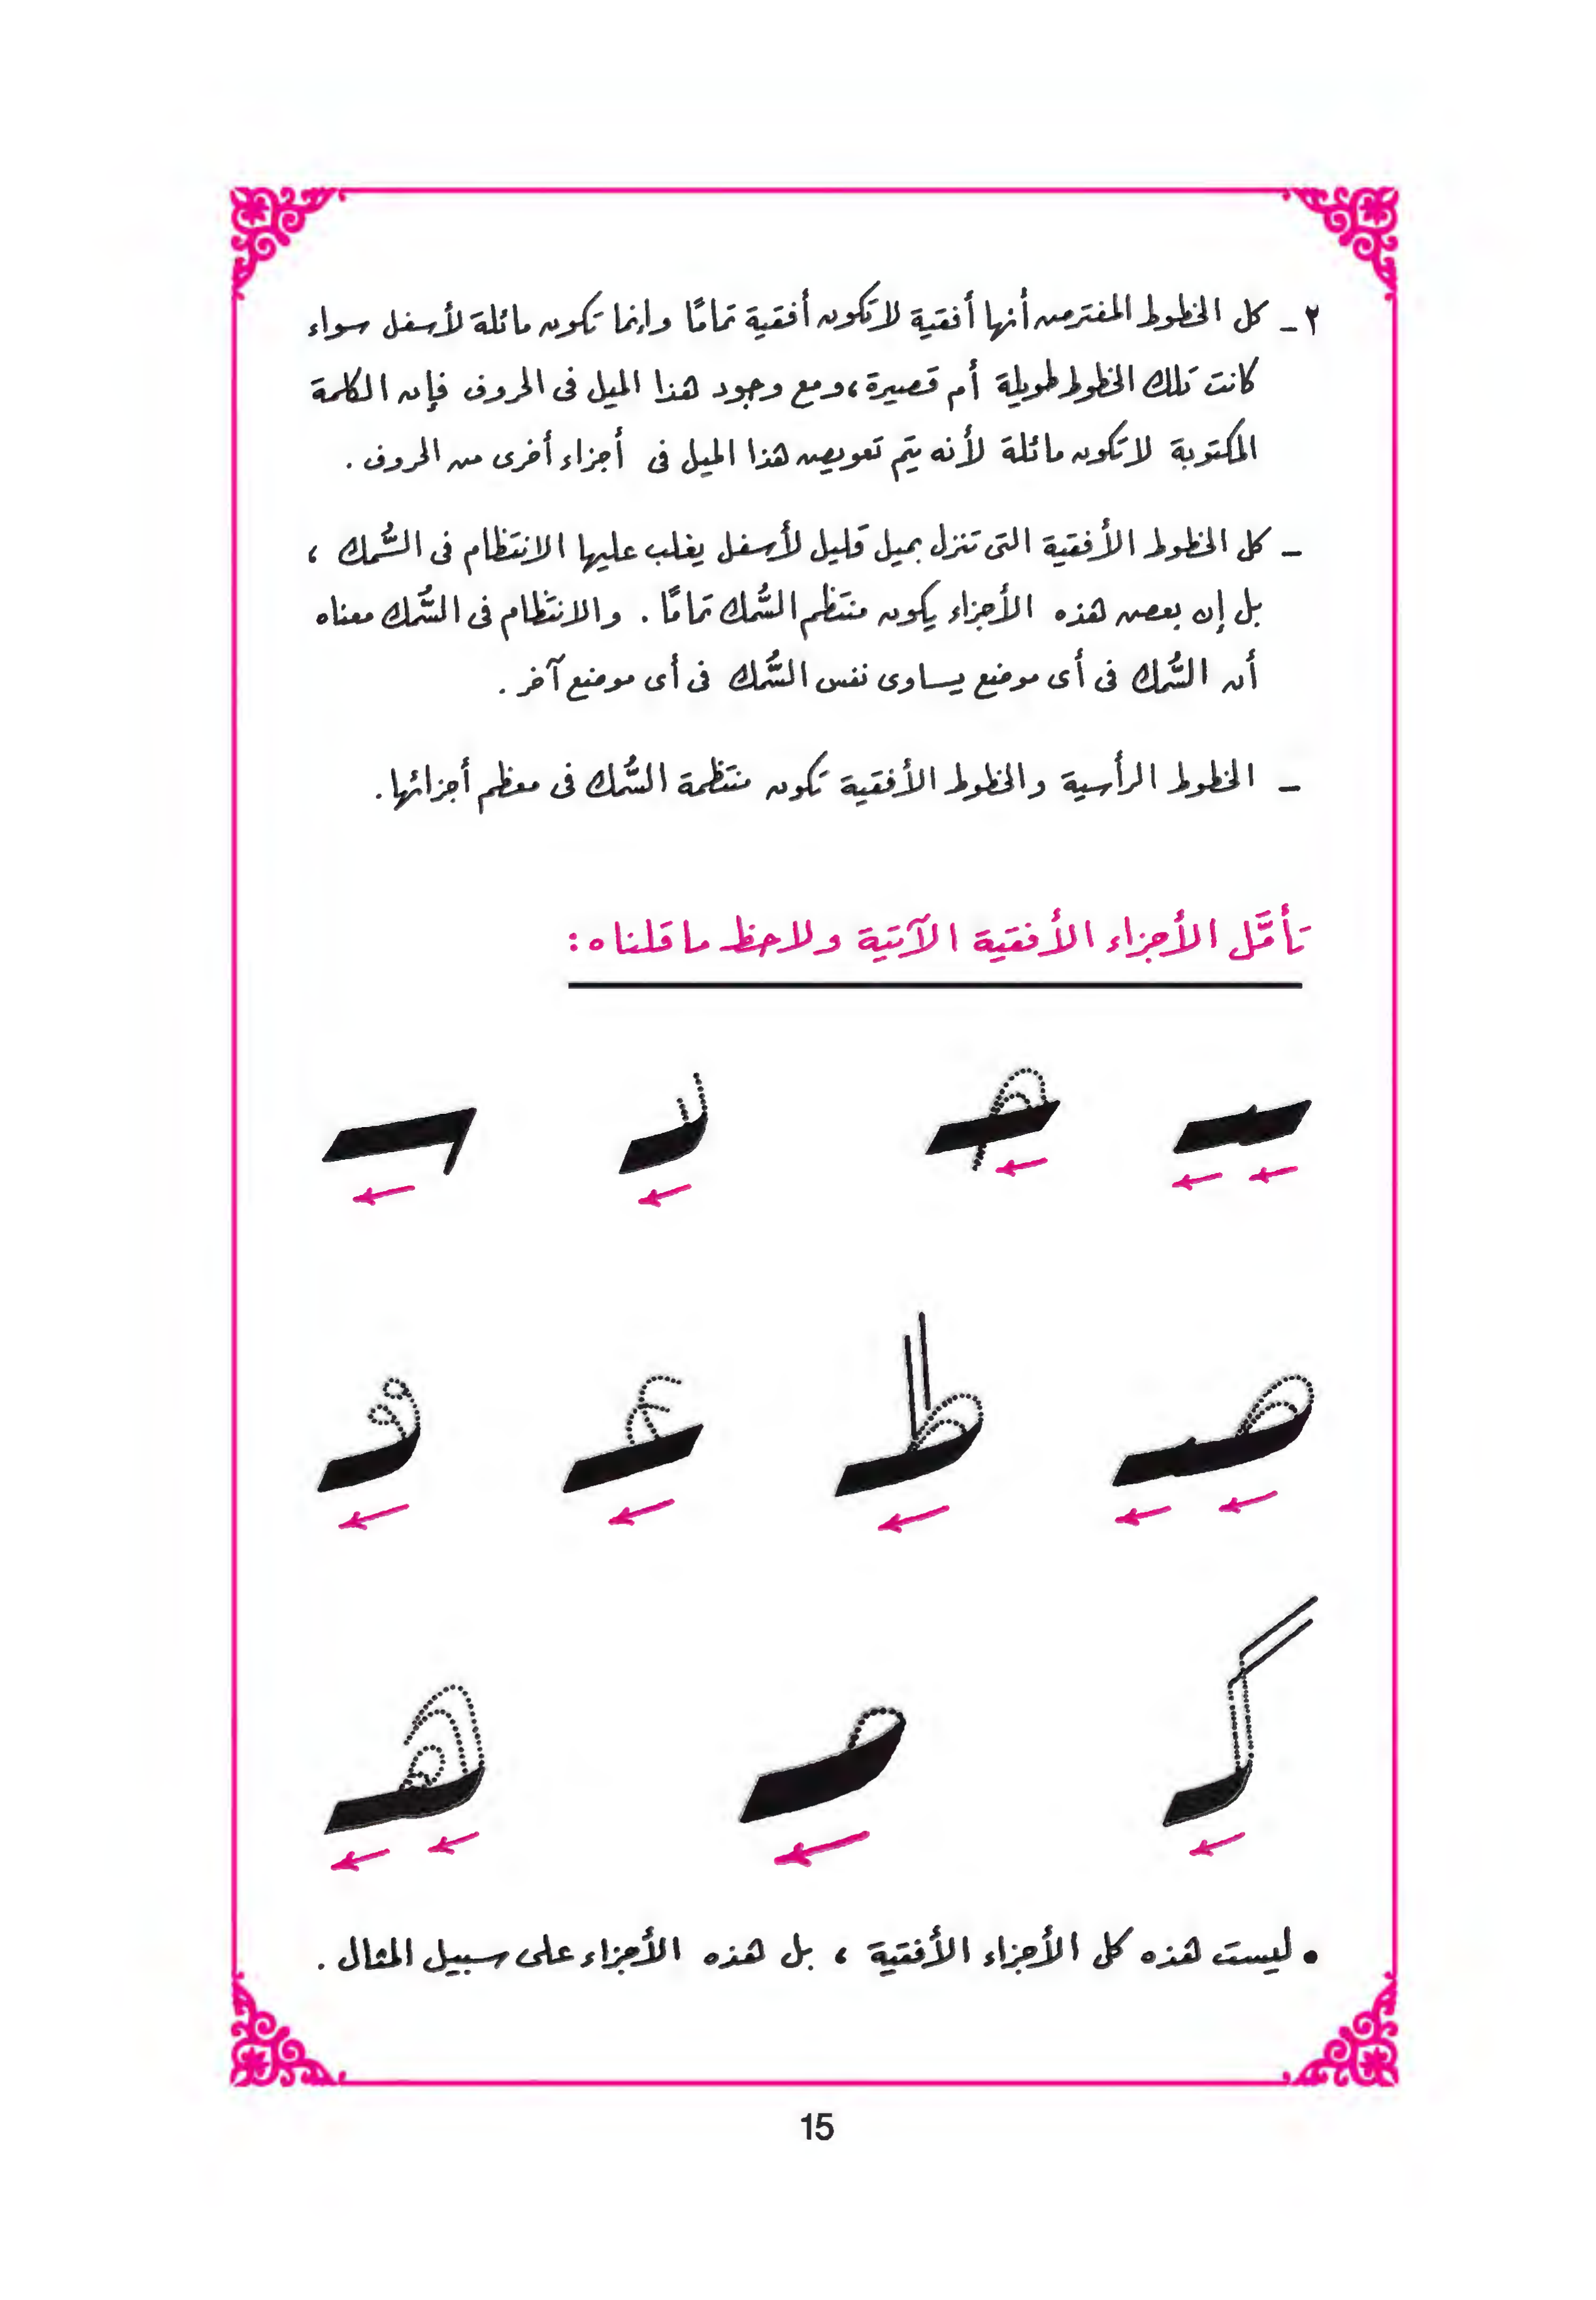 ٢ـ كل الخطوط المفترض أنها أفقية لا تكون أفقية تمامًا وإنما تكون مائلة لأسفل سواء
كانت تلك الخطوط طويلة أم قصيرة ، ومع وجود هذا الميل فى الحروف فإن الكلمة
المكتوبة لا تكون مائلة لأنه يتم تعويض هذا الميل فى أجزاء أخرى من الحروف .
ـ كل الخطوط الأفقية التى تنزل بميل قليل لأسفل يغلب عليها الانتظام فى السُّمك ،
بل إن بعض هذه الأجزاء يكون منتظم السُّمك تمامًا . والانتظام فى السُّمك معناه
أن السُّمك فى أى موضع يساوى نفس السُّمك فى أى موضع آخر .
ـ الخطوط الرأسية والخطوط الأفقية تكون منتظمة السُّمك فى معظم أجزائها .
تأمَّل الأجزاء الأفقية الآتية ولاحظ ما قلناه :
• ليست هذه كل الأجزاء الأفقية ، بل هذه الأجزاء على سبيل المثال .
15